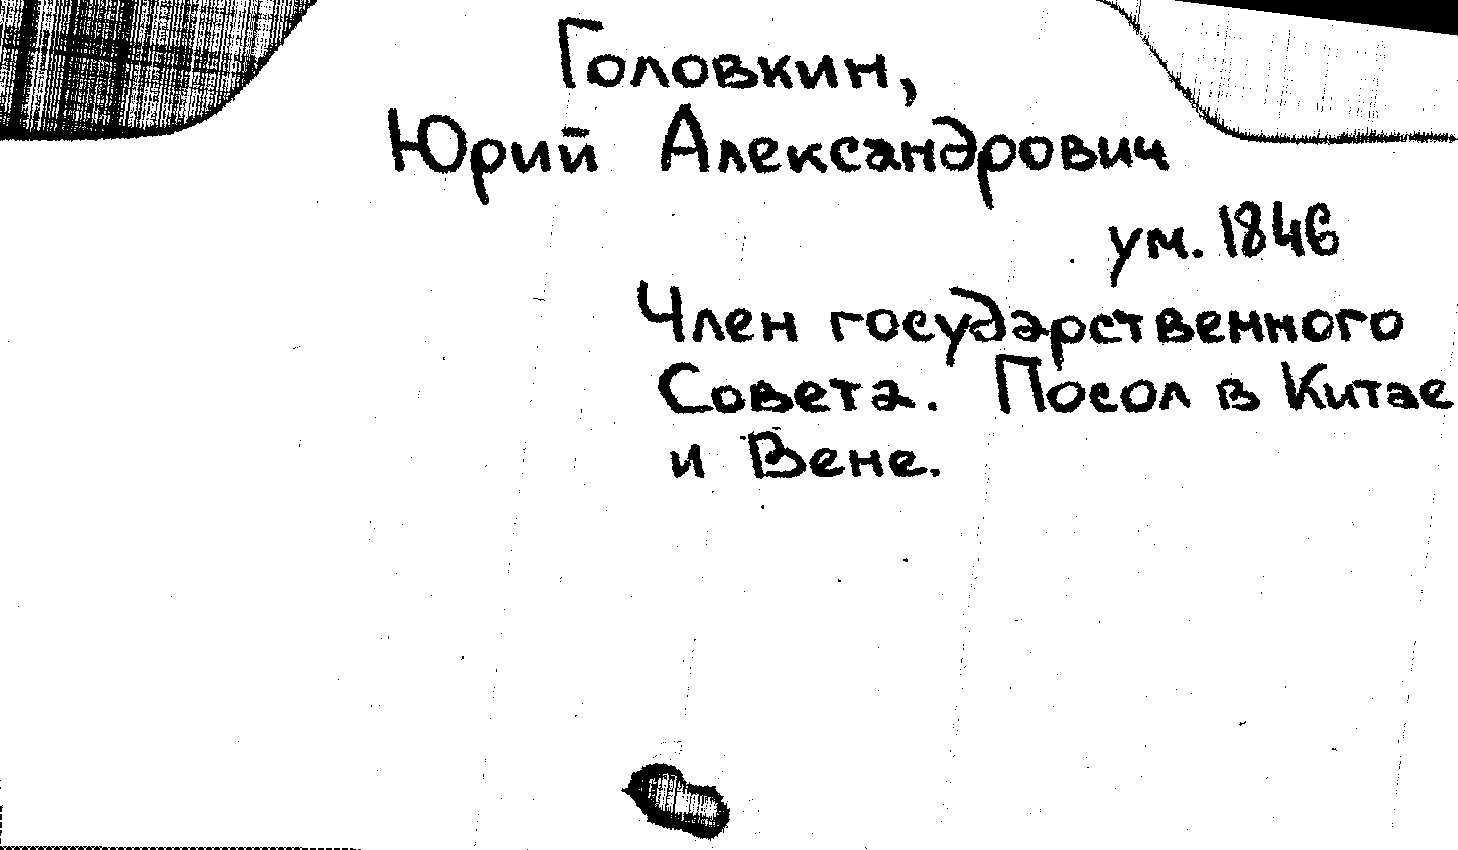 Головкин,
Юрий Александрович
ум. 1846
Член государственного
Совета. Посол в Китае
и Вене.